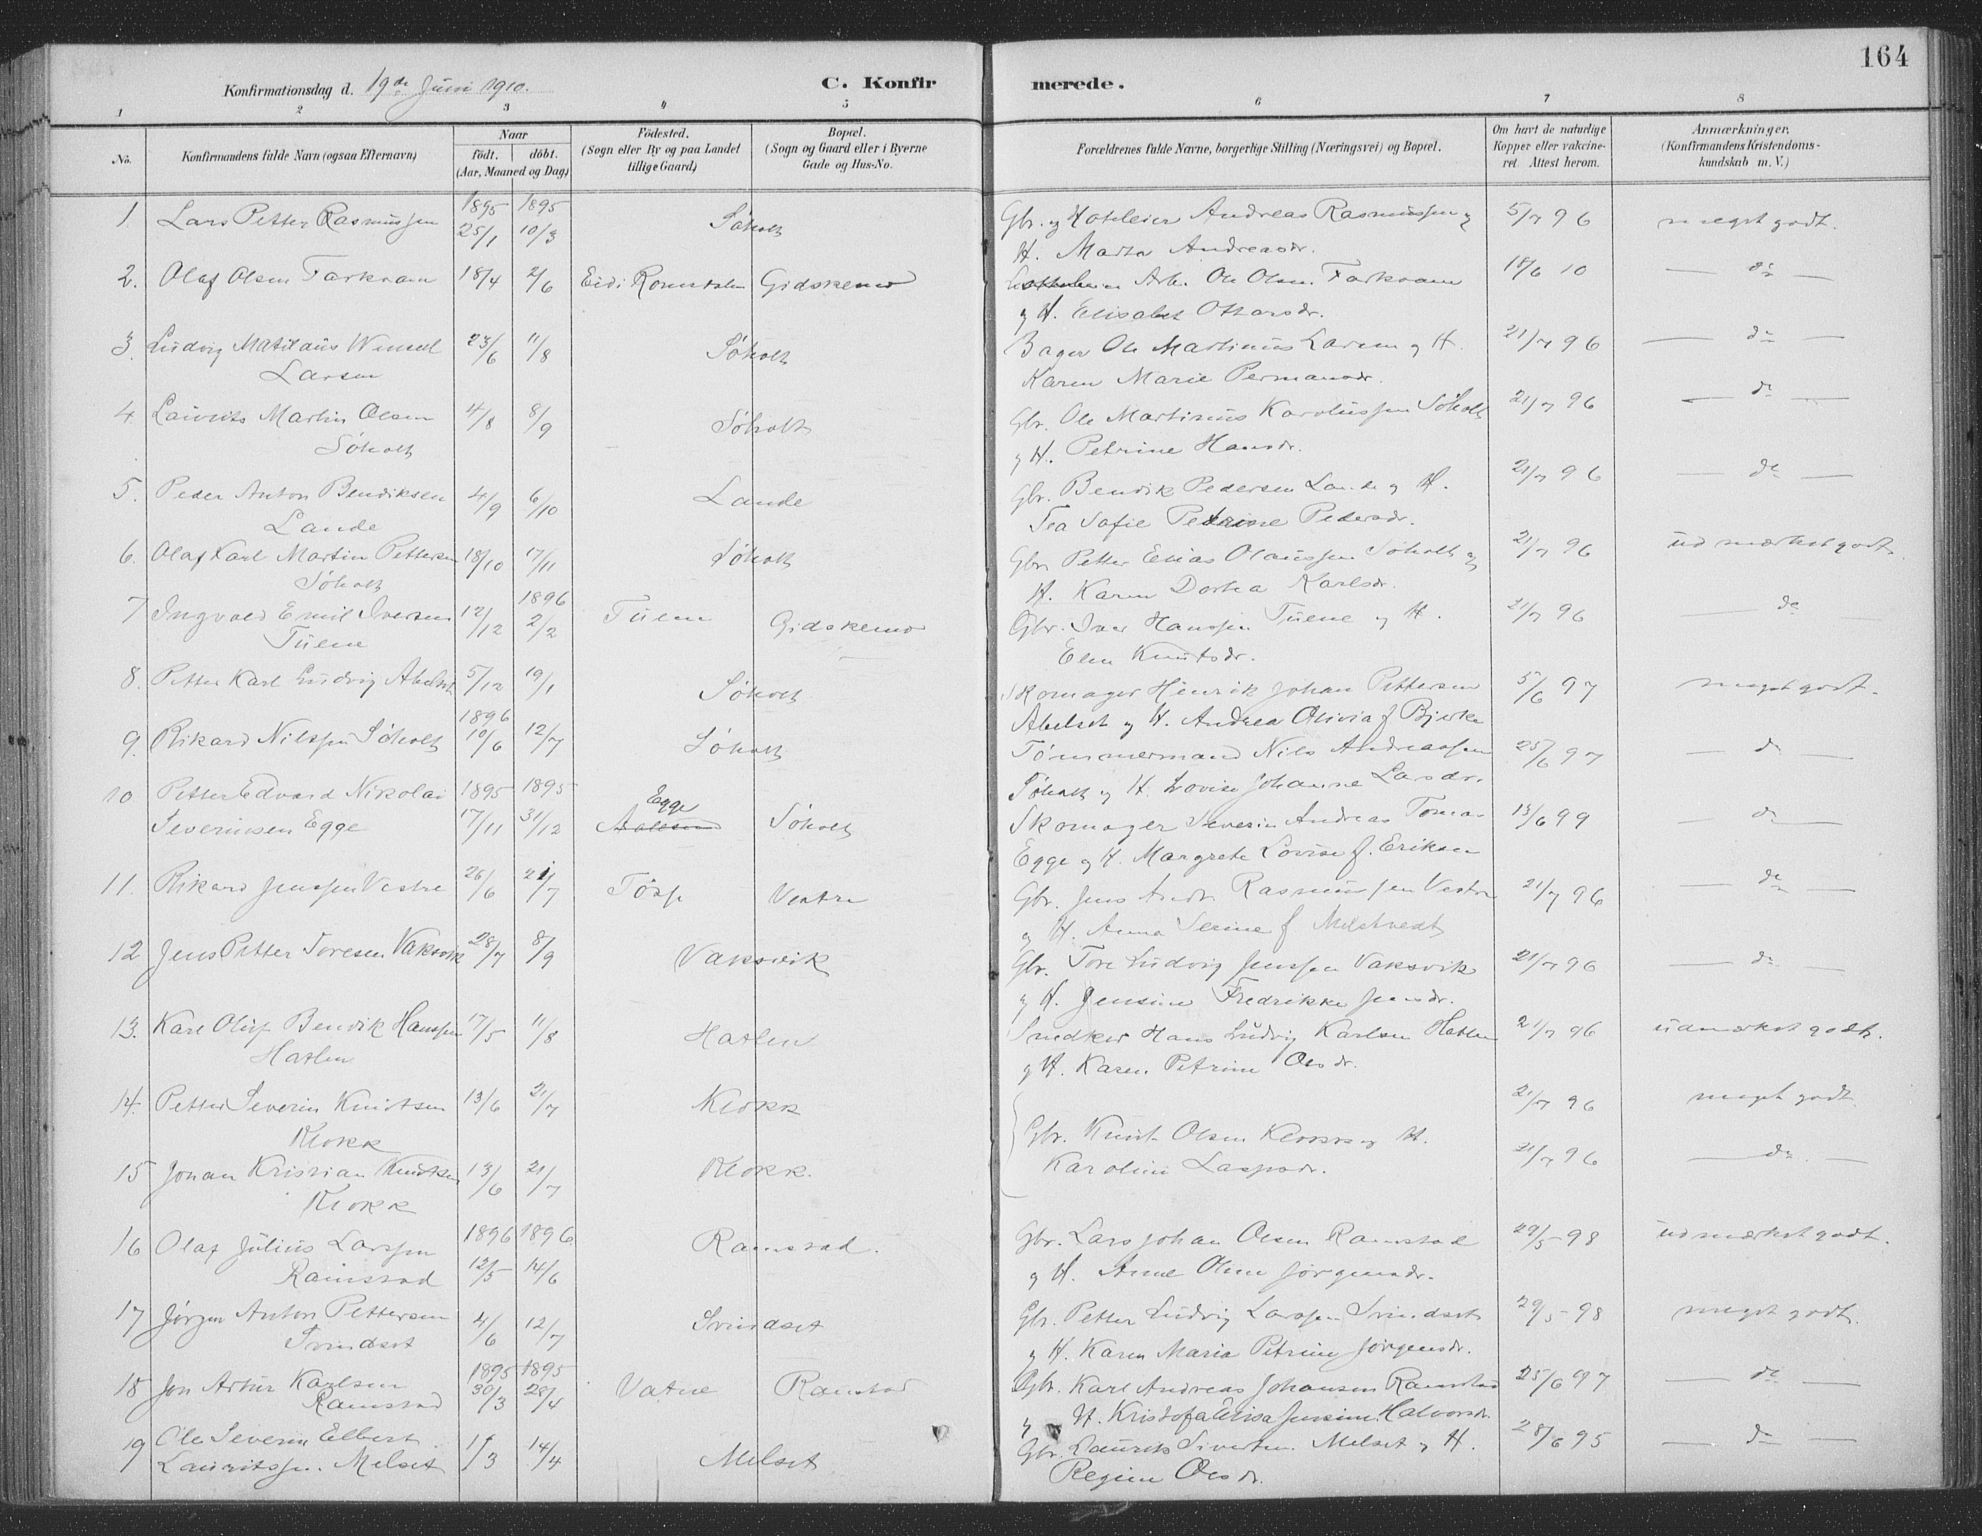 164
Konfirmationsdag d. 19de Juni 1910.
C. Konfir merede.
1 2 3 4 5 6 7 8
No.
Konfirmandens fulde Navn (ogsaa Efternavn)
Naar
födt. döbt.
(Aar, Maaned og Dag)
Födested.
(Sogn eller By og paa Landet
tillige Gaard)
Bopæl.
(Sogn og Gaard eller i Byerne
Gade og Hus-No.
Forældrenes fulde Navne, borgerlige Stilling (Næringsvei) og Bopæl.
Om havt de naturlige
Kopper eller vakcine-
ret. Attest herom.
Anmærkninger.
(Konfirmandens Kristendoms-
kundskab m. V.)
1. Lars Petter Rasmussen 1895 25/1 1895 10/3 Søholt Gbr. og Hoteleier Andreas Rasmussen og 5/7 96 meget godt.
H. Marta Andreasdr.
2. Olaf Olsen Farkvam 18/4 2/6 Eid i Romsdalen Gidskemo Arb. Ole Olsen Farkvam 18/6 10 do
og H. Elisabet Ottarsdr.
3. Ludvig Matilaus Wensel 23/6 11/8 Søholt Bager Ole Martinus Larsen og H. 21/7 96 do
Larsen Karen Marie Permansdr.
4. Laurits Martin Olsen 4/8 8/9 Søholt Gbr. Ole Martinus Karolussen Søholt 21/7 96 do
Søholt og H. Petrine Hansdr.
5. Peder Anton Bendiksen 4/9 6/10 Lande Gbr. Bendik Pedersen Lande og H. 21/7 96 do
Lande Tea Sofie Petrine Pedersdr.
6. Olaf Karl Martin Pettersen 18/10 17/11 Søholt Gbr. Petter Elias Olaussen Søholt og 21/7 96 udmærket godt.
Søholt H. Karen Dortea Karlsdr.
7 Ingvald Emil Iversen 12/12 1896 2/2 Tuene Gidskemo Gbr. Iver Hanssen Tuene og H. 21/7 96 do
Tuene Elen Knutsdr.
8. Petter Karl Ludvig Abelset 5/12 19/1 Søholt Skomager Henrik Johan Pettersen 5/6 97 meget godt.
Abelset og H. Andrea Olivia f. Bjerke
9. Rikard Nilssen Søholt 1896 10/6 12/7 Søholt Tømmermand Nils Andreassen 25/6 97 do
Søholt og H. Lovise Johanne Larsdr.
10 Petter Edvard Nikolai 1895 1895 Egge
Severinsen Egge 17/11 31/12 Aalesund Søholt Skomager Severin Andreas Tomas 13/6 99 do
Egge og H. Margrete Lovise f. Eriksen
11. Rikard Jenssen Vestre 26/6 21/7 Vestre Gbr. Jens Andr. Rasmussen Vestre 21/7 96 do
og H. Anna Serine f.
12 Jens Petter Toresen Vaksvik 28/7 8/9 Vaksvik Gbr. Tore Ludvig Jenssen Vaksvik 21/7 96 do
og H. Jensine Fredrikke Jensdr.
13. Karl Oluf Bendik Hanssen 17/5 11/8 Hatlen Snedker Hans Ludvig Karlsen Hatlen 21/7 96 udmærket godt.
Hatlen og H. Karen Petrine Olsdr.
14. Petter Severin Knutsen 13/6 21/7 Klokk 21/7 96 meget godt.
Klokk Gbr. Knut Olsen Klokk og H.
15 Johan Kristian Knutsen 13/6 21/7 Klokk. Karoline Laspsdr. 21/7 96 do.
Klokk
16 Olaf Julius Larssen 1896 12/5 1896 14/6 Ramstad. Gbr. Lars Johan Olsen Ramstad 29/5 98 udmærket godt.
Ramstad og H. Anne Oline Jørgensdr.
17 Jørgen Anton Pettersen 4/6 12/7 Svindset Gbr. Petter Ludvig Larssen Svindset 29/5 98 meget godt.
Svindset og H. Karen Maria Petrine Jørgensdr.
18 Jon Artur Karlsen 1895 30/3 1895 28/4 Vatne Ramstad Gbr. Karl Andreas Johansen Ramstad 25/6 97 do
Ramstad og H. Kristofa Elisa Jensine Halvorsdr.
19 Ole Severin Elbert 1/3 14/4 Melset Gbr. Laurits Sivertsen Melset og H. 28/6 95 do
Lauritssen Melset Regine Olsdr.